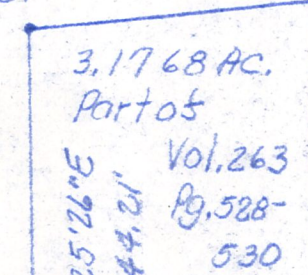 3.1768 AC.
Part of
Vol.263
Pg.528-
530
25'26"E
44.21'